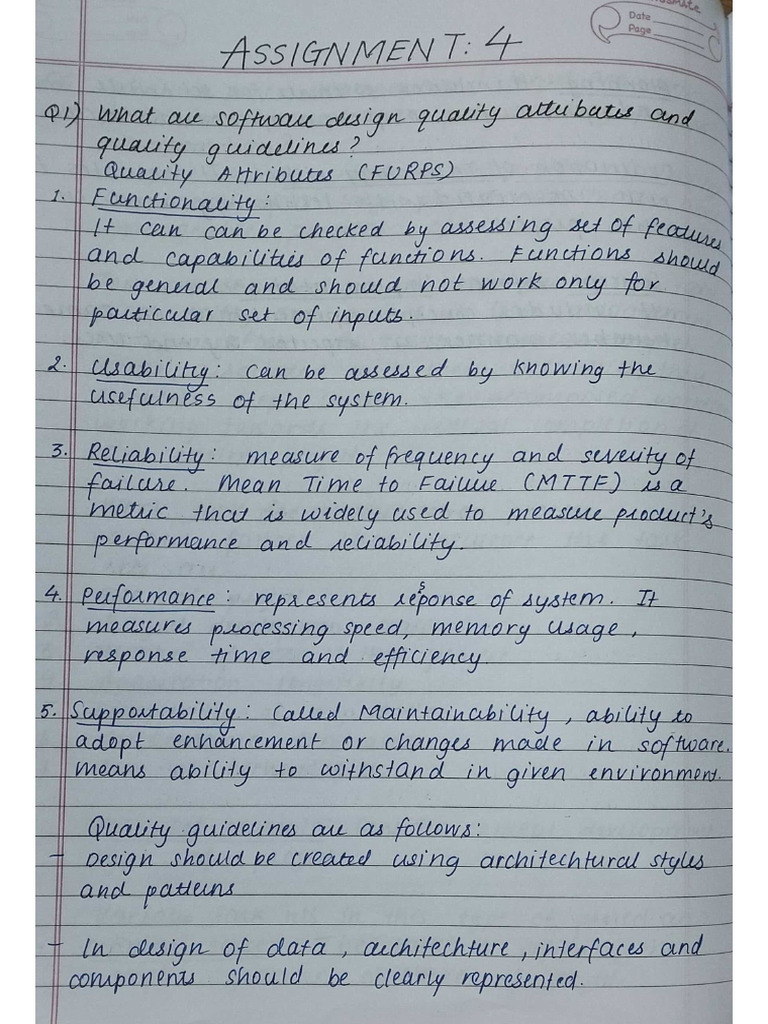 Date
Page
ASSIGNMENT: 4
Q1) What are software design quality attributes and
quality guidelines?
Quality Attributes (FURPS)
1. Functionality:
It can can be checked by assessing set of features
and capabilities of functions. Functions should
be general and should not work only for
particular set of inputs.
2. Usability: can be assessed by knowing the
usefulness of the system.
3. Reliability: measure of frequency and severity of
failure. Mean Time to Failure (MTTF) is a
metric that is widely used to measure product's
performance and reliability.
4. Performance: represents response of system. It
measures processing speed, memory usage,
response time and efficiency.
5. Supportability: called Maintainability, ability to
adopt enhancement or changes made in software.
means ability to withstand in given environment.
Quality guidelines are as follows:
- Design should be created using architechtural styles
and patterns
- In design of data, architechture, interfaces and
components should be clearly represented.